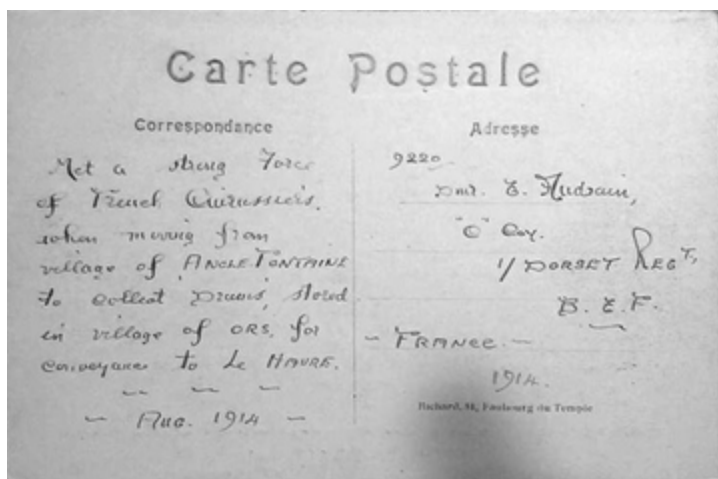 Carte Postale
Correspondance
Met a strong Force
of French Cuirassiers,
when moving from
village of ANGLE FONTAINE
to collect Drums, stored
in village of ORS, for
conveyance to Le HAVRE.
— Aug. 1914 —
Adresse
9220
Dmr. E.
"C" Coy.
1/ DORSET REGT,
B. E. F.
— FRANCE. —
1914.
Richard, 84, Faubourg du Temple